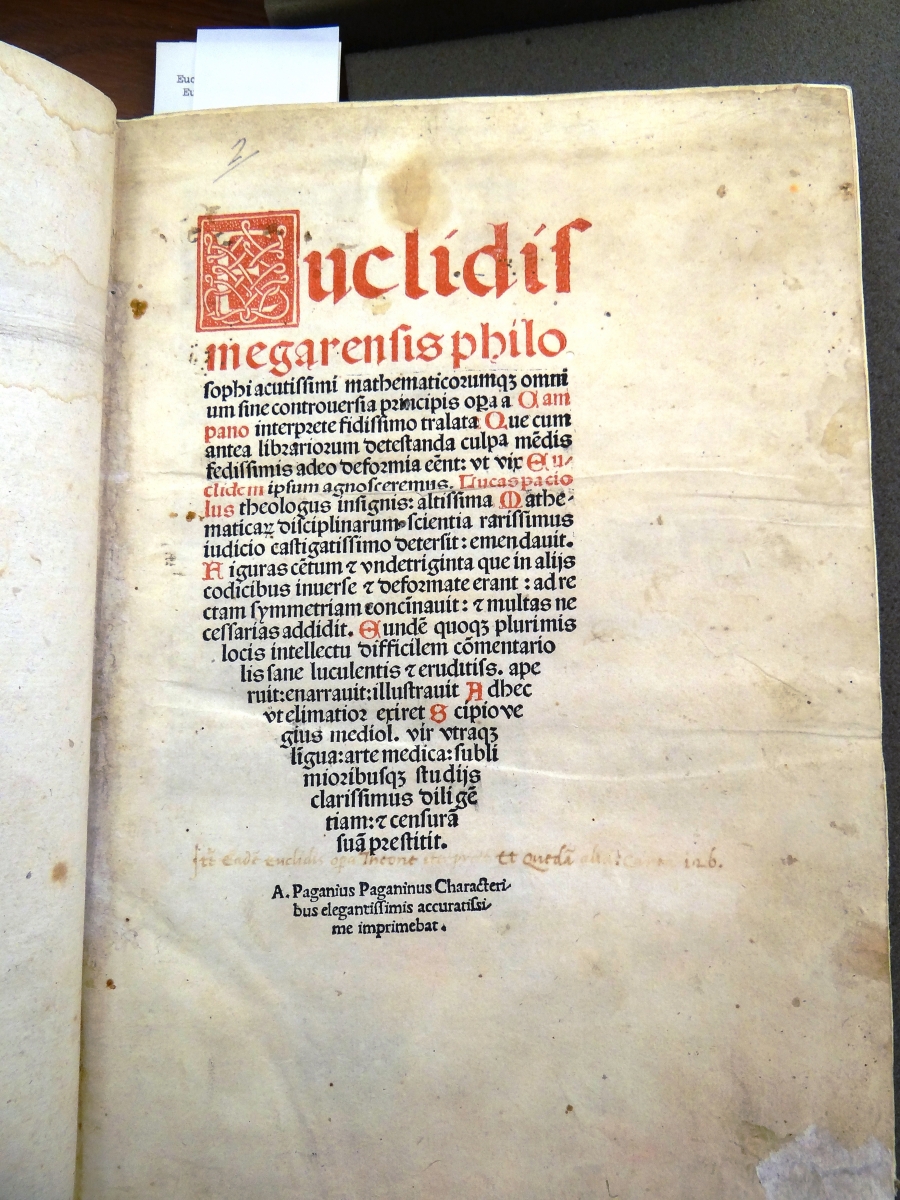 Euc
Eu
2
Euclidiſ
megarenſis philo
ſophi acutiſſimi mathematicorumqꝫ omni
um ſine controuerſia principis oꝑa a Cam
pano interprete fidiſſimo tralata Que cum
antea librariorum deteſtanda culpa mēdis
fediſſimis adeo deformia eēnt: vt vix Eu⸗
clidem ipſum agnoſceremus. Lucas pacio
lus theologus inſignis: altiſſima Mathe⸗
maticaꝝ diſciplinarum ſcientia rariſſimus
iudicio caſtigatiſſimo deterſit: emendauit.
Figuras cētum ⁊ vndetriginta que in alijs
codicibus inuerſe ⁊ deformate erant : ad re
ctam ſymmetriam concīnauit : ⁊ multas ne
ceſſarias addidit. Eundē quoqꝫ plurimis
locis intellectu difficilem cōmentario
lis ſane luculentis ⁊ eruditiſs. ape
ruit: enarrauit: illuſtrauit Adhec
vt elimatior exiret Scipio ve
gius mediol. vir vtraqꝫ
līgua: arte medica: ſubli
mioribuſqꝫ ſtudijs
clariſſimus diligē
tiam: ⁊ cenſurā
ſuā preſtitit.
Euclidis 126.
A. Paganius Paganinus Characteri⸗
bus elegantiſſimis accuratiſsi⸗
me imprimebat.